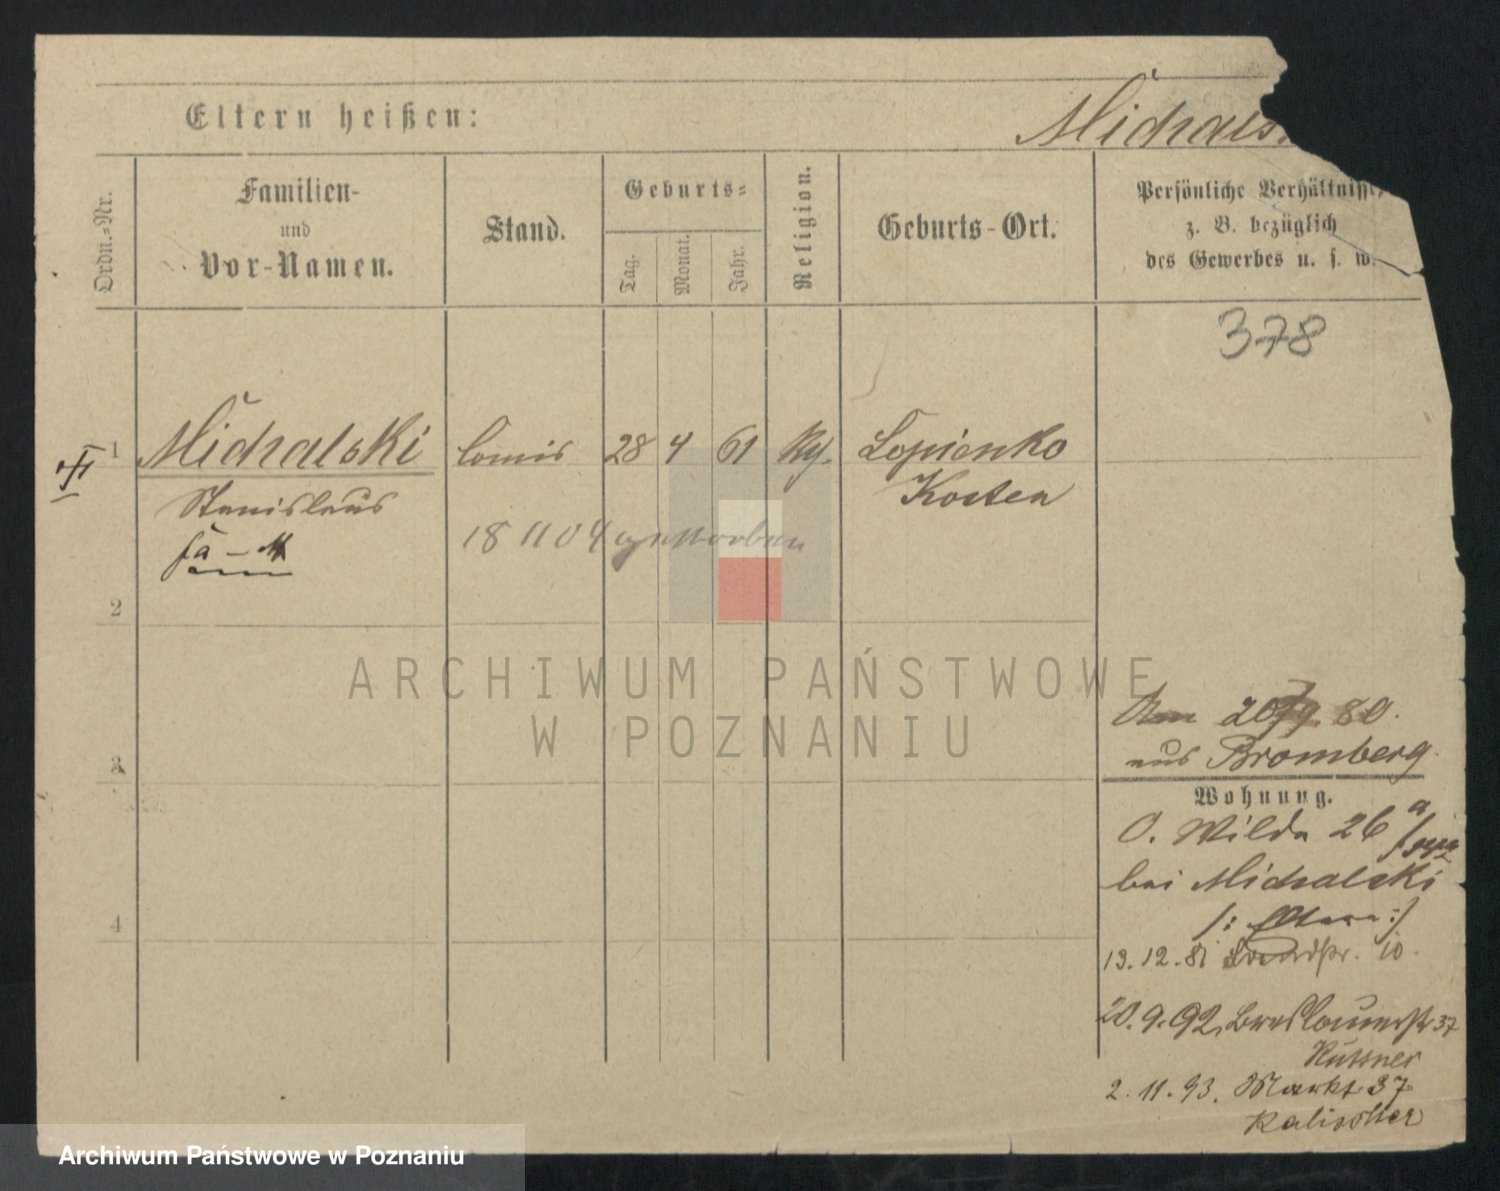 Eltern heißen:
Michals
Ordn.-Nr.
Familien-
und
Vor-Namen.
Stand.
Geburts-
Tag.
Monat.
Jahr.
Religion.
Geburts-Ort.
Persönliche Verhältnisse,
z. B. bezüglich
des Gewerbes u. s. w.
378
1
Michalski
Comis
28
4
61
Lopienko
Stanislaus
Kosten
18 11 04 gestorben
2
3
4
ARCHIWUM PAŃSTWOWE
W POZNANIU
80.
aus Bromberg
Wohnung.
O. Wilda 26 a
bei Michalski
/: Eltern :/
13. 12. 81
10.
20. 9. 92. Breslauerstr 37
Kuttner
2. 11. 93. Markt 37
Kalischer
Archiwum Państwowe w Poznaniu